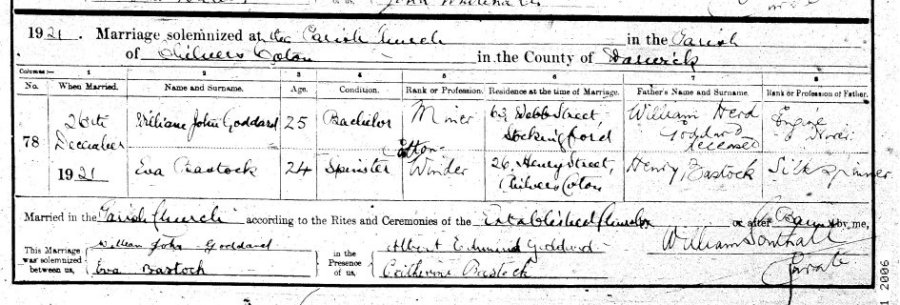 1921. Marriage solemnized at the Parish Church in the Parish
of Chilvers Coton in the County of Warwick
Columns:— 1 2 3 4 5 6 7 8
No. When Married. Name and Surname. Age. Condition. Rank or Profession. Residence at the time of Marriage. Father's Name and Surname. Rank or Profession of Father.
78 26th December 1921
William John Goddard 25 Bachelor Miner 63 Webb Street, Stockingford William Goddard deceased Engine Driver
Eva Bastock 24 Spinster Cotton Winder 26, Henry Street, Chilvers Coton Henry Bastock Silk spinner
Married in the Parish Church according to the Rites and Ceremonies of the Established Church or after Banns by me,
This Marriage was solemnized between us, William John Goddard Eva Bastock in the Presence of us, Albert Edmund Goddard Catherine Bastock William Southall Curate
2006